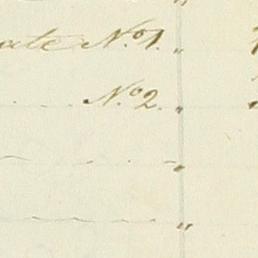 ate N.º 1. "
N.º 2. "
"
"